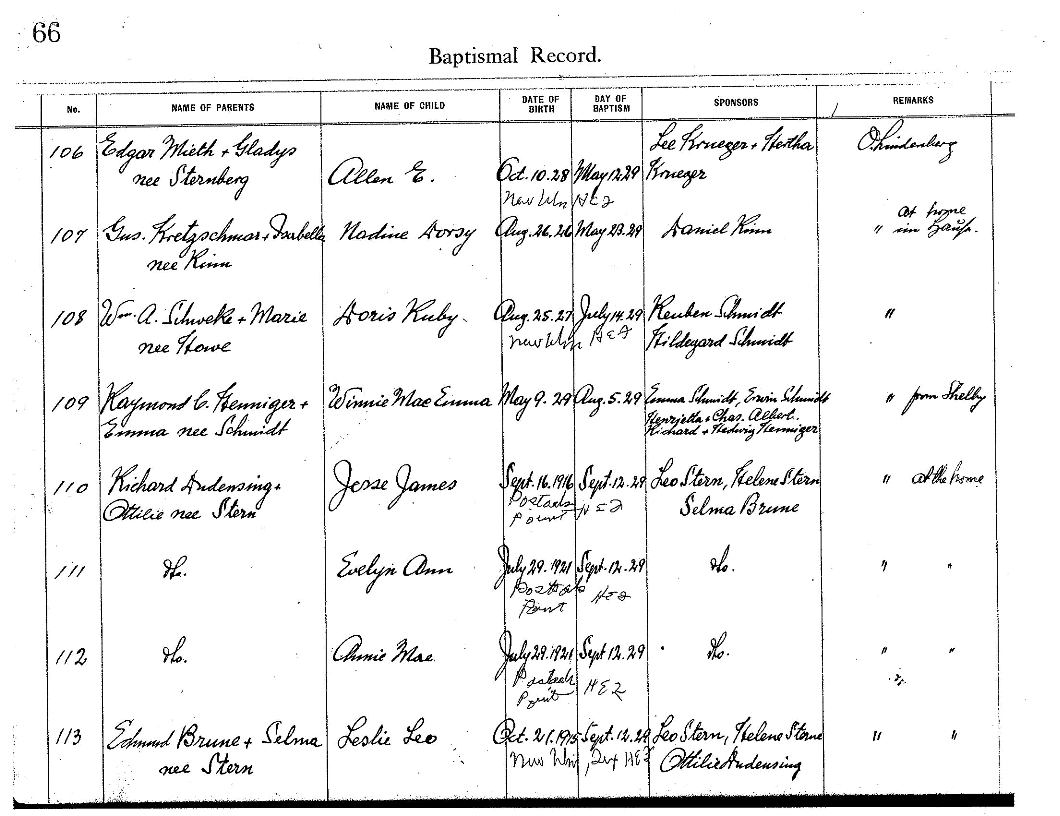 66
Baptismal Record.
No. NAME OF PARENTS NAME OF CHILD DATE OF BIRTH DAY OF BAPTISM SPONSORS REMARKS
106 Edgar Mieth + Gladys Lee Krueger + Hertha O. Lindenberg
nee Sternberg Allen E. Oct. 10. 28 May 12 29 Krueger
New Ulm
at home
107 Gus. Kretzschmar + Isabella Nadine Dorsy Aug. 26. 26 May 23. 29 Daniel Kinn " im Hause.
nee Kinn
108 Wm. A. Schweke + Marie Doris Ruby. Aug. 25. 27 July 14. 29 Reuben Schmidt "
nee Howe New Ulm Hildegard Schmidt
109 Raymond C. Henniger + Winnie Mae Emma May 9. 29 Aug. 5. 29 Emma Schmidt, Erwin Schmidt " from Shelby
Emma nee Schmidt Henrietta + Chas. Albert.
Richard + Hedwig Henniger
110 Richard Dudensing + Jesse James Sept. 16. 1916 Sept. 12. 29 Leo Stern, Helene Stern " at the home
Ottilie nee Stern Point Selma Brune
111 do. Evelyn Ann July 29. 1921 Sept. 12. 29 do. " "
Point
112 do. Annie Mae July 29. 1921 Sept 12. 29 do. " "
Point
113 Edmund Brune + Selma Leslie Leo Oct. 21. 1915 Sept. 12. 29 Leo Stern, Helene Stern " "
nee Stern New Ulm, Tex Ottilie Dudensing